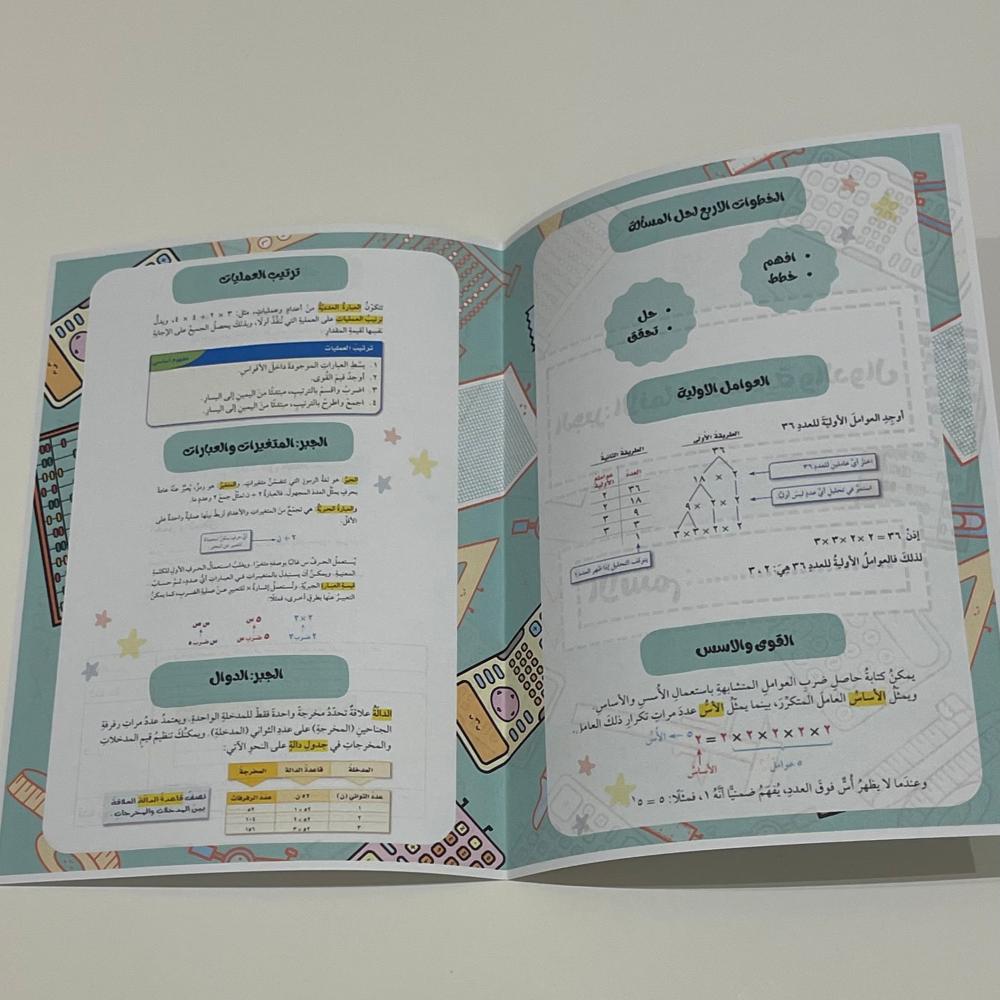 الخطوات الأربع لحل المسألة
• افهم
• خطط
• حل
• تحقق
العوامل الأولية
أوجِدِ العواملَ الأوليّةَ للعددِ ٣٦
الطريقة الأولى
٣٦
١٨ × ٢
٩ × ٢ × ٢
٣ × ٣ × ٢ × ٢
اختر أيَّ عاملين للعدد ٣٦
استمر في تحليل أيِّ عددٍ ليس أوليًّا.
الطريقة الثانية
العدد عوامله الأولية
٣٦ ٢
١٨ ٢
٩ ٣
٣ ٣
١
يتوقف التحليل إذا ظهر العدد ١
إذنْ ٣٦ = ٢ × ٢ × ٣ × ٣
لذلكَ فالعواملُ الأوليةُ للعددِ ٣٦ هيَ: ٢، ٣
القوى والأسس
يمكنُ كتابةُ حاصلِ ضربِ العواملِ المتشابهةِ باستعمالِ الأُسسِ والأساسِ.
ويمثّلُ الأساسُ العاملَ المتكرّرَ، بينما يمثّلُ الأسُّ عددَ مراتِ تكرارِ ذلكَ العاملِ.
٢ × ٢ × ٢ × ٢ × ٢ = ٢٥ ← الأُسُّ
٥ عوامل
الأساسُ
وعندَما لا يظهرُ أسٌّ فوقَ العددِ، يُفهَمُ ضمنيًّا أنَّهُ ١، فمثلًا: ٥ = ١٥
ترتيب العمليات
تتكوّنُ العبارةُ العدديّةُ منْ أعدادٍ وعملياتٍ، مثل: ٣ × ٢ + ٤ × ٤، ويدلُّ
ترتيبُ العملياتِ على العمليةِ التي تُنفَّذُ أولًا، وبذلكَ يحصلُ الجميعُ على الإجابةِ
نفسِها لقيمةِ المقدارِ.
ترتيب العمليات
مفهوم أساسي
١. بسّطِ العباراتِ الموجودةَ داخلَ الأقواسِ.
٢. أوجدْ قيمَ القُوى.
٣. اضربْ واقسمْ بالترتيبِ، مبتدئًا منَ اليمينِ إلى اليسارِ.
٤. اجمعْ واطرحْ بالترتيبِ، مبتدئًا منَ اليمينِ إلى اليسارِ.
الجبر: المتغيرات والعبارات
الجبرُ: هو لغةُ الرموزِ التي تتضمّنُ متغيراتٍ. والمتغيرُ: هو رمزٌ، يُعبَّرُ عنهُ عادةً
بحرفٍ يمثّلُ العددَ المجهولَ. فالعبارةُ ٢ + ن تمثّلُ جمعَ ٢ وعددٍ ما.
والعبارةُ الجبريّةُ: هي تجمّعٌ منَ المتغيراتِ والأعدادِ تربطُ بينَها عمليةٌ واحدةٌ على
الأقلِّ.
٢ + ن
يُستعملُ الحرفُ س غالبًا بوصفِه متغيرًا. ويغلبُ استعمالُ الحرفِ الأولِ للكلمةِ
قيمةِ العبارةِ الجبريّةِ. وتُستعملُ إشارةُ × للتعبيرِ عنْ عمليةِ الضربِ، كما يمكنُ
التعبيرُ عنها بطرقٍ أخرى، فمثلًا:
٢ × ٢ ٥ س س ص
٢ ضرب ٢ ٥ ضرب س
الجبر: الدوال
الدالّةُ علاقةٌ تحدّدُ مخرجةً واحدةً فقطْ للمدخلةِ الواحدةِ. ويعتمدُ عددُ مراتِ رفرفةِ
الجناحينِ (المخرجةُ) على عددِ الثواني (المدخلةُ). ويمكنُكَ تنظيمُ قيمِ المدخلاتِ
والمخرجاتِ في جدولِ دالّةٍ على النحوِ الآتي:
المدخلة قاعدة الدالة المخرجة
عدد الثواني (ن) ٥٢ ن عدد الرفرفات
١ ٥٢ × ١ ٥٢
٢ ٥٢ × ٢ ١٠٤
٣ ٥٢ × ٣ ١٥٦
تصف قاعدة الدالة العلاقة
بين المدخلات والمخرجات.